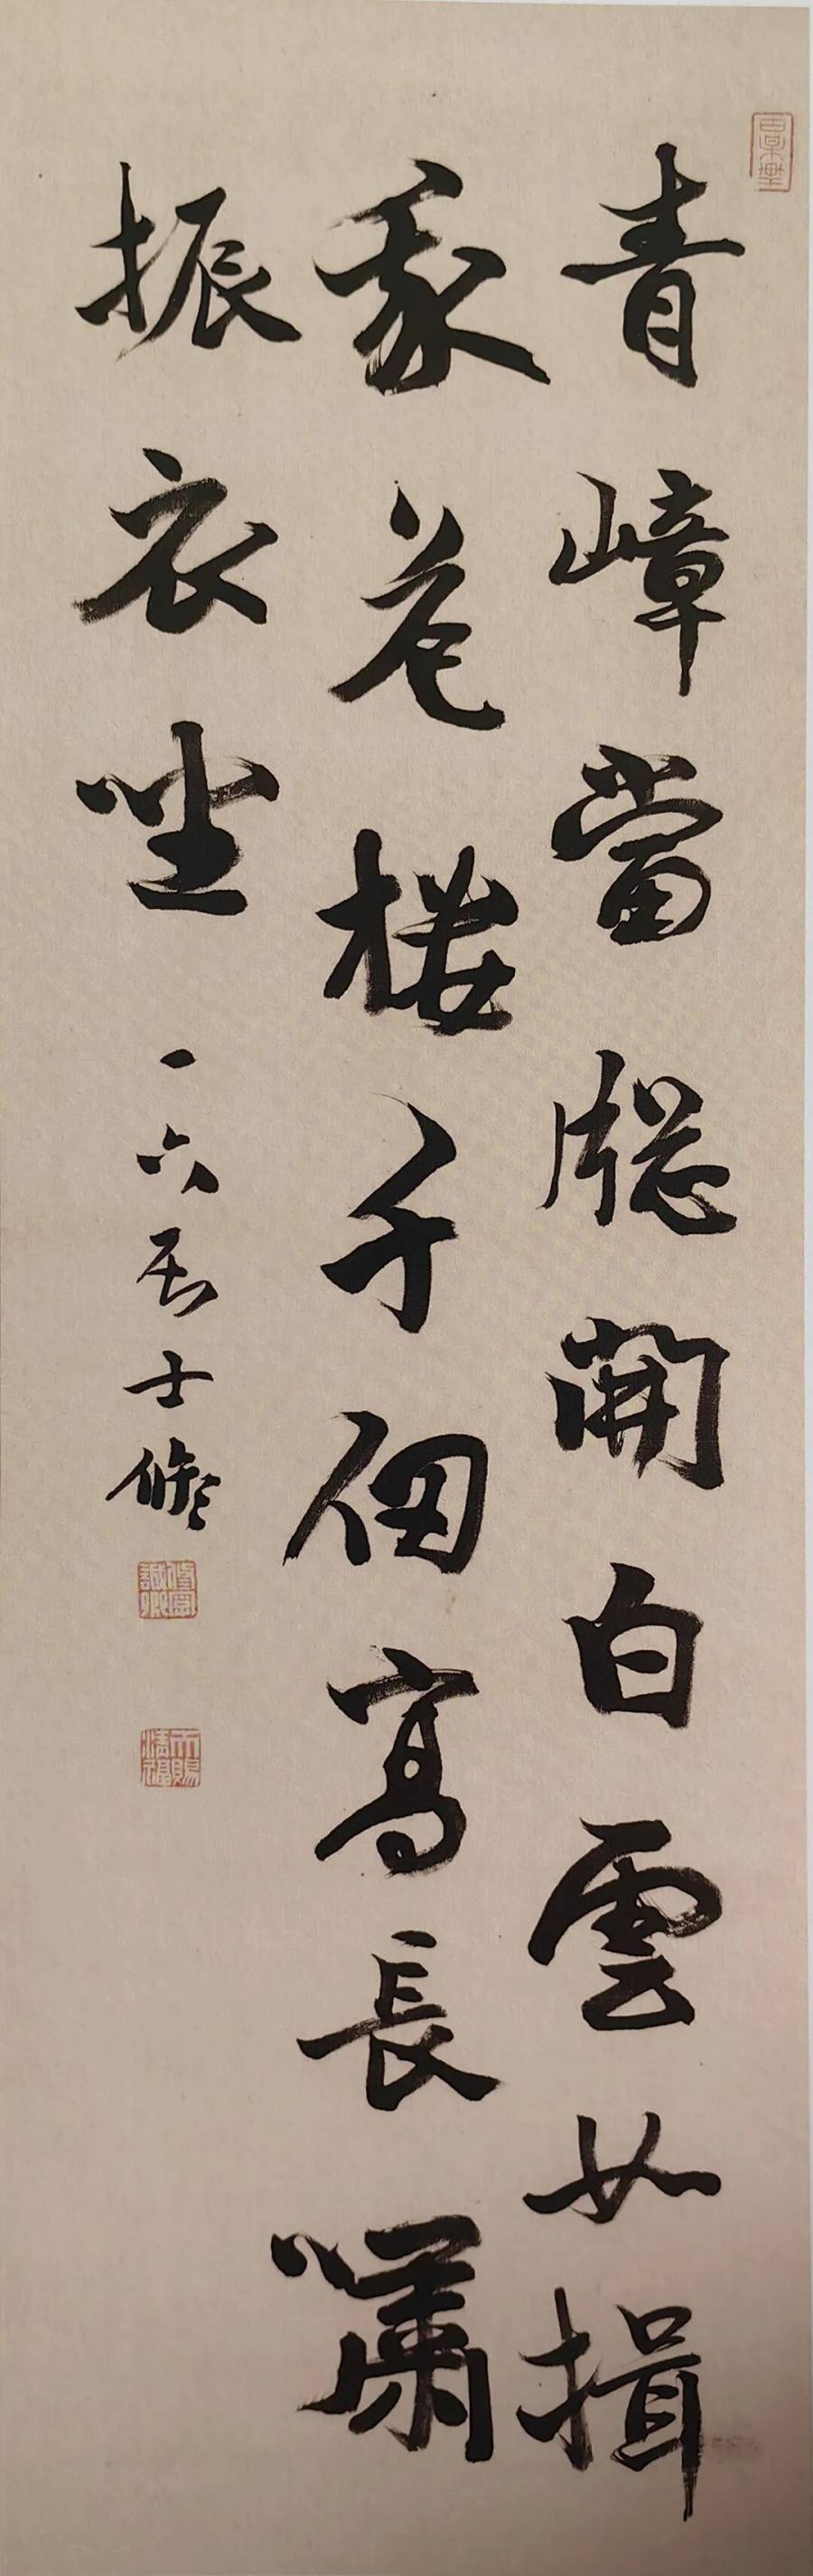 青嶂當牎開白雲如揖
我若樓千仞高長嘯
振衣坐
一六居士修